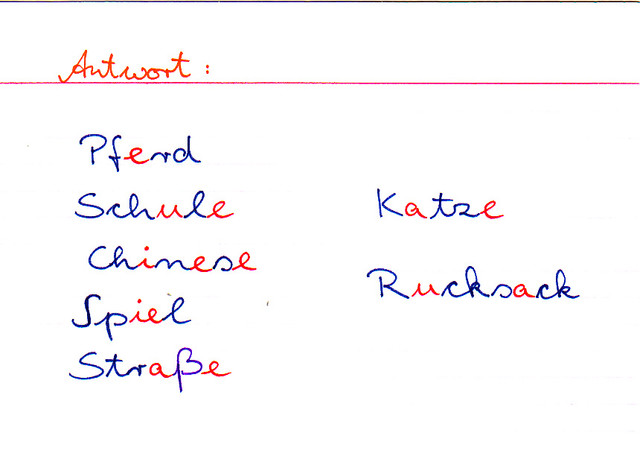 Antwort:
Pferd
Schule
Chinese
Spiel
Straße
Katze
Rucksack